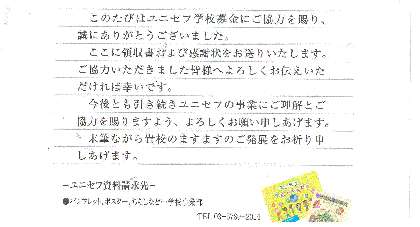 このたびはユニセフ学校募金にご協力を賜り、
誠にありがとうございました。
ここに領収書および感謝状をお送りいたします。
ご協力いただきました皆様へよろしくお伝えいた
だければ幸いです。
今後とも引き続きユニセフの事業にご理解とご
協力を賜りますよう、よろしくお願い申しあげます。
末筆ながら貴校のますますのご発展をお祈り申
しあげます。
−ユニセフ資料請求先−
●パンフレット、ポスター、ちらしなど…学校事業部